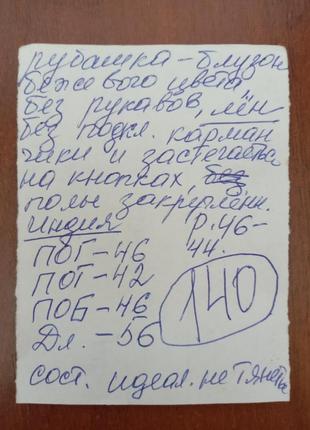 рубашка - блузон
бежевого цвета
без рукавов, лён
без подкл. карман
чики и застегается
на кнопках, без
полы закреплённ.
Индия Р. 46-
44.
ПОГ - 46
ПОТ - 42
ПОБ - 46
Дл. - 56
140
сост. идеал. не тянется